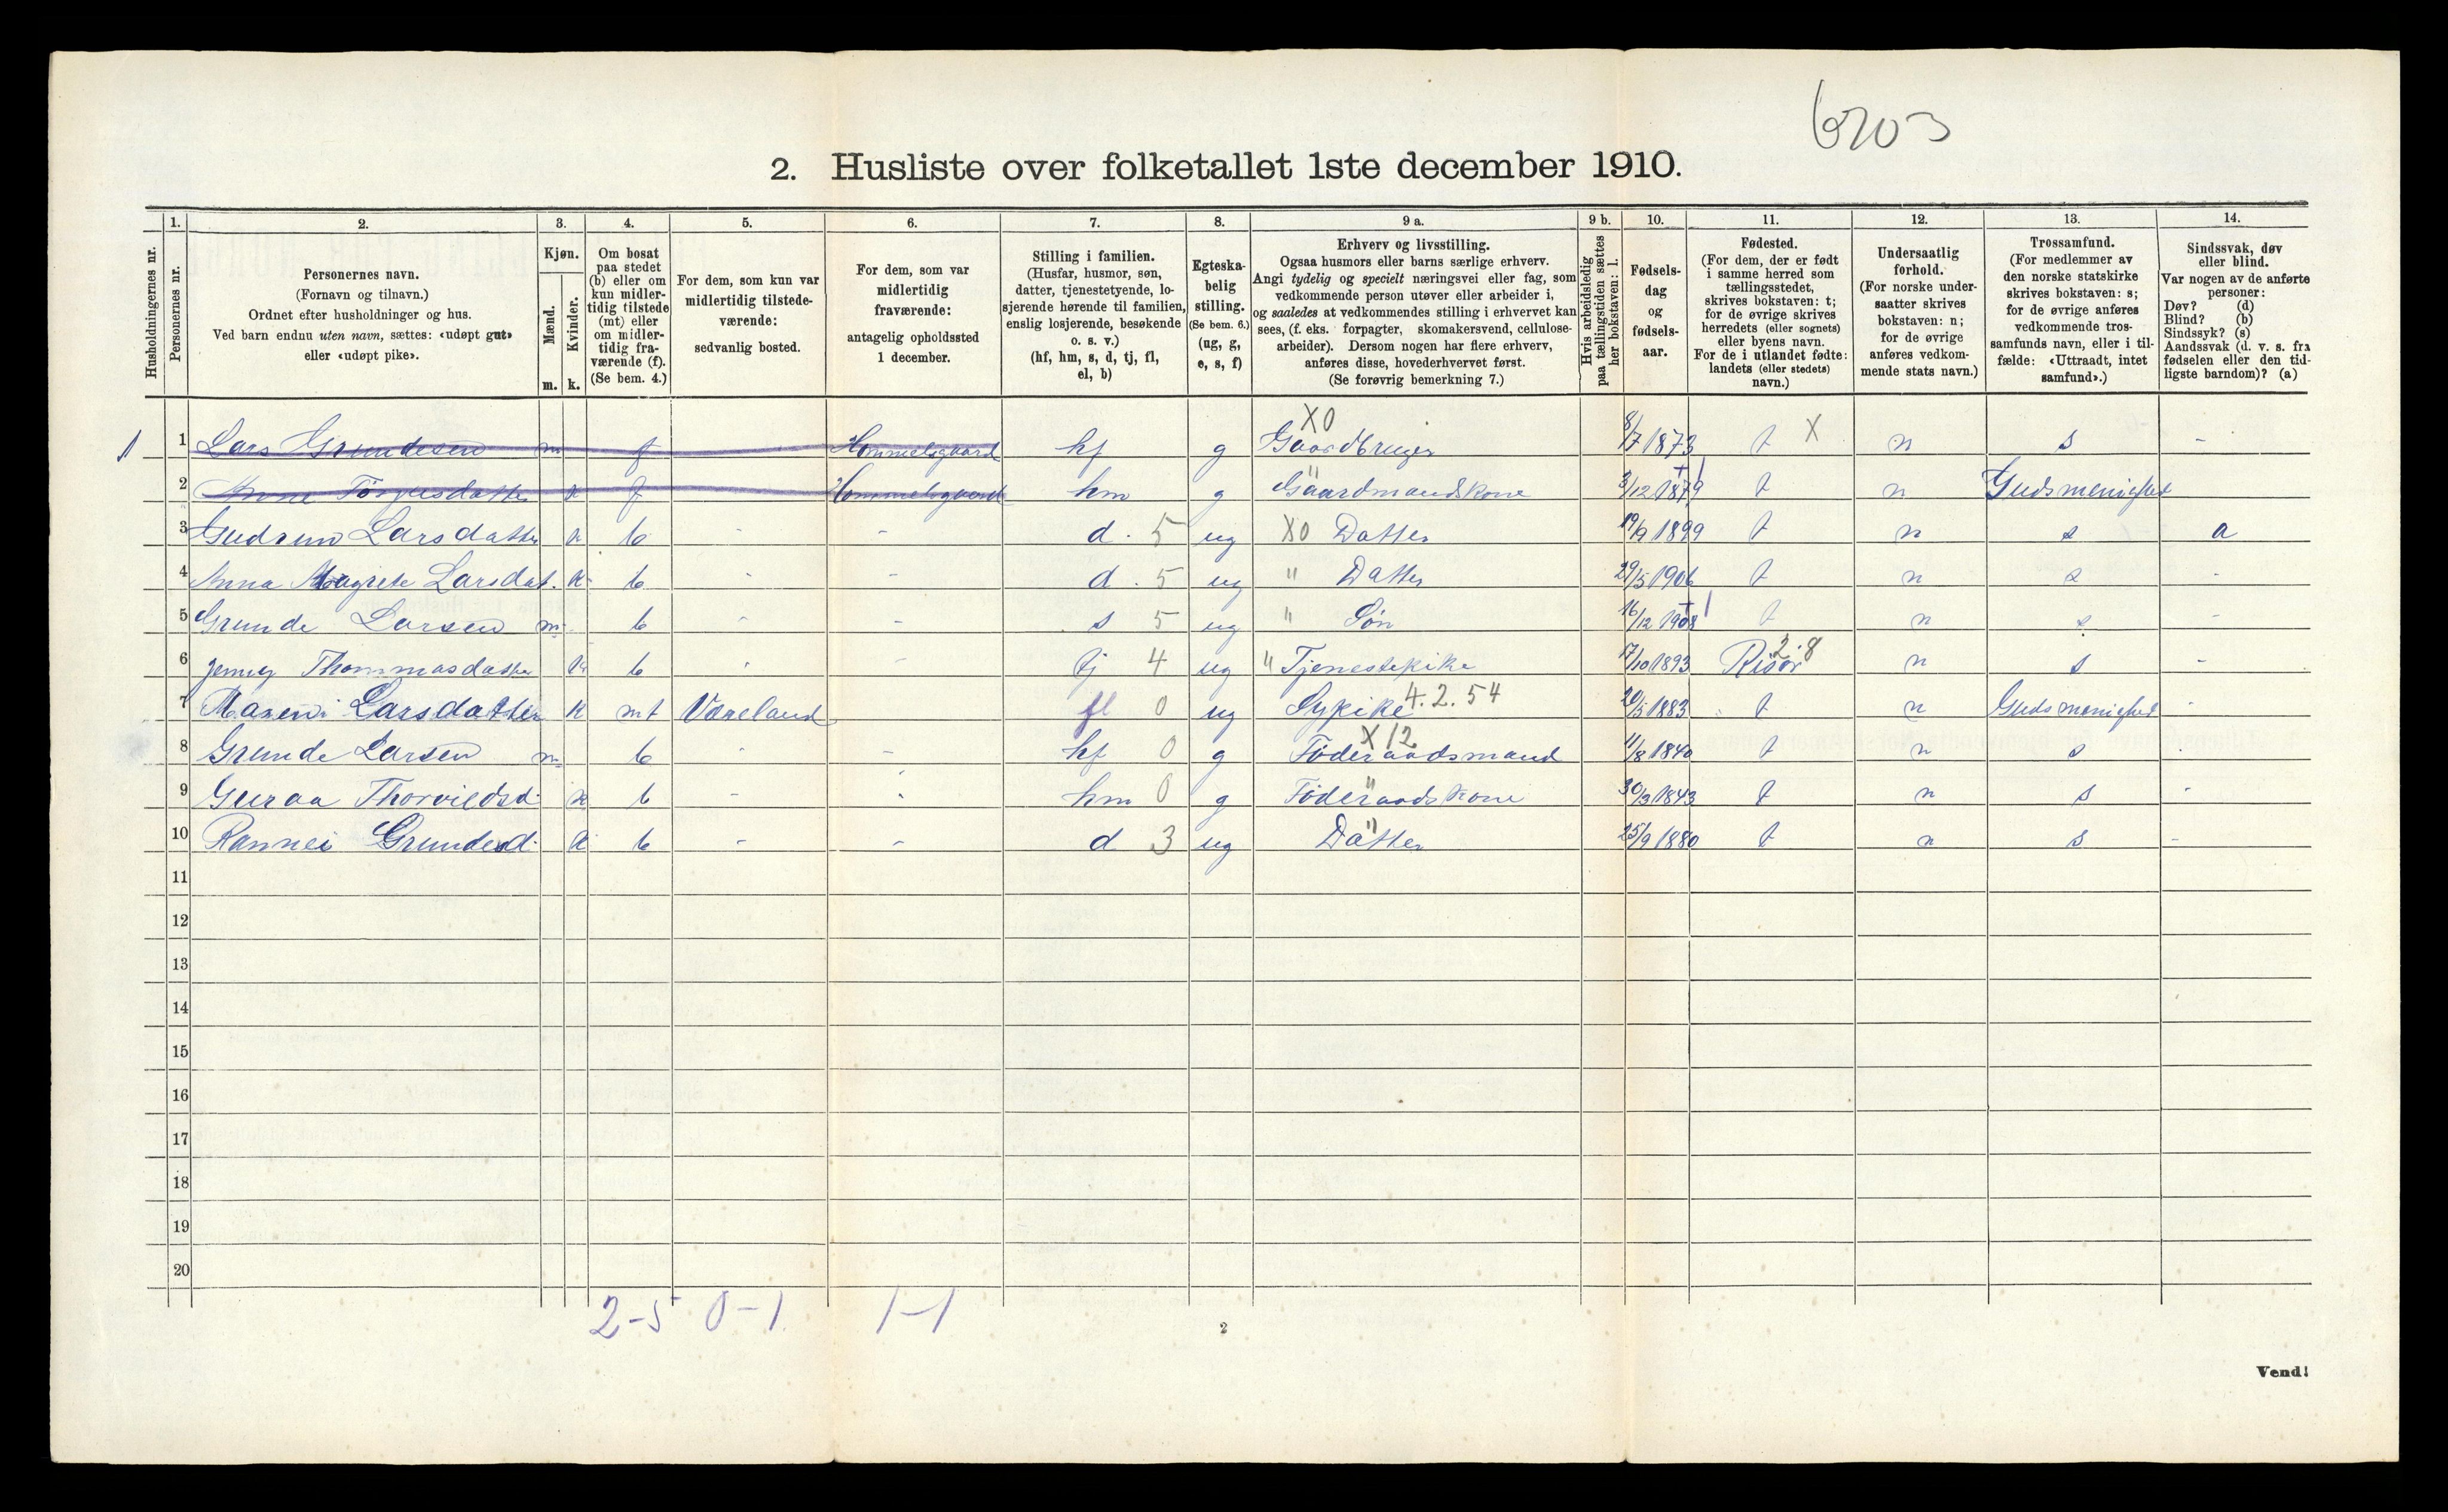 6703
2. Husliste over folketallet 1ste december 1910.
1. 2. 3. 4. 5. 6. 7. 8. 9 a. 9 b. 10. 11. 12. 13. 14.
Husholdningernes nr.
Personernes nr.
Personernes navn.
(Fornavn og tilnavn.)
Ordnet efter husholdninger og hus.
Ved barn endnu uten navn, sættes: «udøpt gut»
eller «udøpt pike».
Kjøn.
Mænd.
Kvinder.
m. k.
Om bosat
paa stedet
(b) eller om
kun midler-
tidig tilstede
(mt) eller
om midler-
tidig fra-
værende (f).
(Se bem. 4.)
For dem, som kun var
midlertidig tilstede-
værende:
sedvanlig bosted.
For dem, som var
midlertidig
fraværende:
antagelig opholdssted
1 december.
Stilling i familien.
(Husfar, husmor, søn,
datter, tjenestetyende, lo-
sjerende hørende til familien,
enslig losjerende, besøkende
o. s. v.)
(hf, hm, s, d, tj, fl,
el, b)
Egteska-
belig
stilling.
(Se bem. 6.)
(ug, g,
e, s, f)
Erhverv og livsstilling.
Ogsaa husmors eller barns særlige erhverv.
Angi tydelig og specielt næringsvei eller fag, som
vedkommende person utøver eller arbeider i,
og saaledes at vedkommendes stilling i erhvervet kan
sees, (f. eks. forpagter, skomakersvend, cellulose-
arbeider). Dersom nogen har flere erhverv,
anføres disse, hovederhvervet først.
(Se forøvrig bemerkning 7.)
Hvis arbeidsledig
paa tællingstiden sættes
her bokstaven: l.
Fødsels-
dag
og
fødsels-
aar.
Fødested.
(For dem, der er født
i samme herred som
tællingsstedet,
skrives bokstaven: t;
for de øvrige skrives
herredets (eller sognets)
eller byens navn.
For de i utlandet fødte:
landets (eller stedets)
navn.)
Undersaatlig
forhold.
(For norske under-
saatter skrives
bokstaven: n;
for de øvrige
anføres vedkom-
mende stats navn.)
Trossamfund.
(For medlemmer av
den norske statskirke
skrives bokstaven: s;
for de øvrige anføres
vedkommende tros-
samfunds navn, eller i til-
fælde: «Uttraadt, intet
samfund».)
Sindssvak, døv
eller blind.
Var nogen av de anførte
personer:
Døv? (d)
Blind? (b)
Sindssyk? (s)
Aandssvak (d. v. s. fra
fødselen eller den tid-
ligste barndom)? (a)
X0
1 1 Lars Grundesen m f Hommelsgaard hf g Gaardbruger 8/7 1873 t X n s -
2 Anne k f Hommelsgaard hm g " Gaardmandskone 3/12 1879 t n Guds menighed
3 Gudrun Larsdatter k b - - d. 5 ug X0 Datter 19/9 1899 t n s a
4 Anna Magrete Larsdat. k b - - d. 5 ug " Datter 29/5 1906 t n s -
5 Grunde Larsen m b - - s 5 ug " Søn 16/12 1908 t n s -
6 Jenny Thommasdatter k b - - tj 4 ug " Tjenestepike 17/10 1893 Risør 2.8 n s -
7 Mareni Larsdatter k mt Væreland fl 0 ug Sypike 4.2.54 20/5 1883 t n Guds menighed -
8 Grunde Larsen m b - - hf 0 g X12 Føderaadsmand 11/8 1840 t n s -
9 Guraa Thorvildsd. k b - - hm 0 g " Føderaadskone 30/3 1843 t n s -
10 Rannei Grundesd. k b - - d 3 ug " Datter 25/9 1880 t n s -
11
12
13
14
15
16
17
18
19
20
2-5 0-1 1-1
2
Vend!